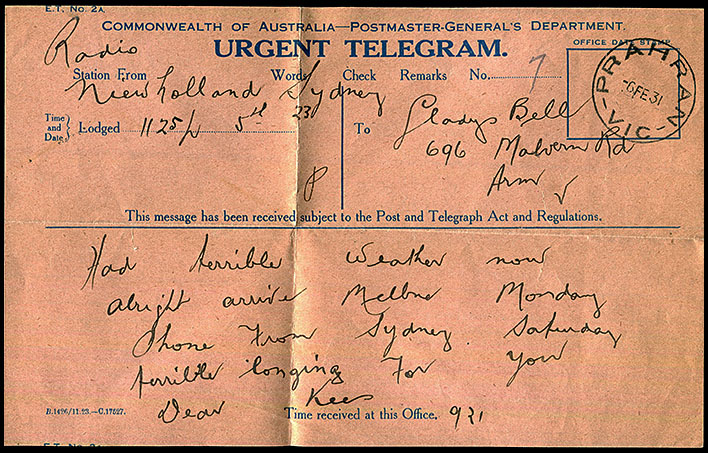 E.T. No. 2A.
COMMONWEALTH OF AUSTRALIA—POSTMASTER-GENERAL'S DEPARTMENT.
URGENT TELEGRAM.
OFFICE DATE STAMP
Radio
Station From Words Check Remarks No. 7
New Holland Sydney
23
Time and Date } Lodged 1125/p 5th
To Gladys Bell
696 Malvern Rd
Arm
PRAHRAN
6FE31
VIC
This message has been received subject to the Post and Telegraph Act and Regulations.
Had terrible weather now
alright arrive Melbne Monday
Phone From Sydney Saturday
terrible longing For you
Dear Kees
B.1426/11.23.—C.17527.
Time received at this Office. 921
E.T. No. 2A.